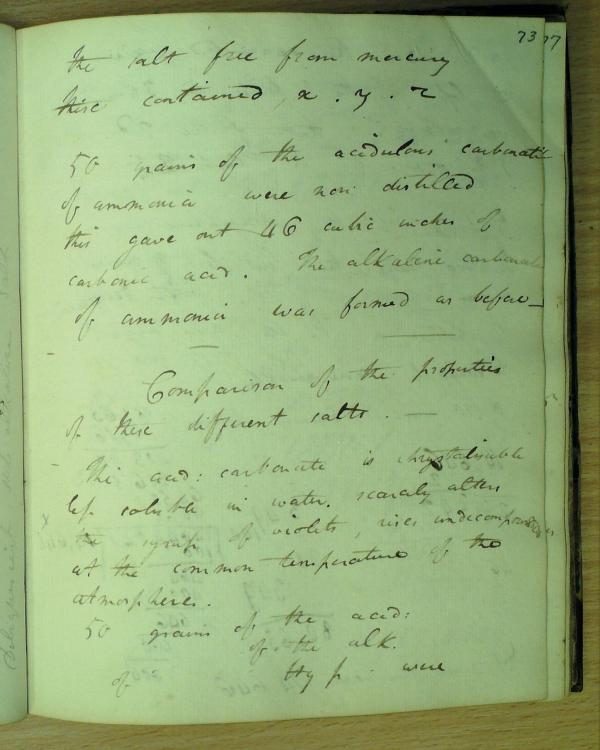 73 77
the salt free from mercury
this contained x . y . z
50 grains of the acidulous carbonate
of ammonia were now distilled
this gave out 46 cubic inches of
carbonic acid. The alkaline carbonate
of ammonia was formed as before_
Comparison of the properties
of these different salts. —
The acid: carbonate is chrystalisable
less soluble in water. scarcely alters
the syrup of violets, rises undecompounded
at the common temperature of the
atmosphere.
50 grains of the acid:
of the alk.
of Hyp. were